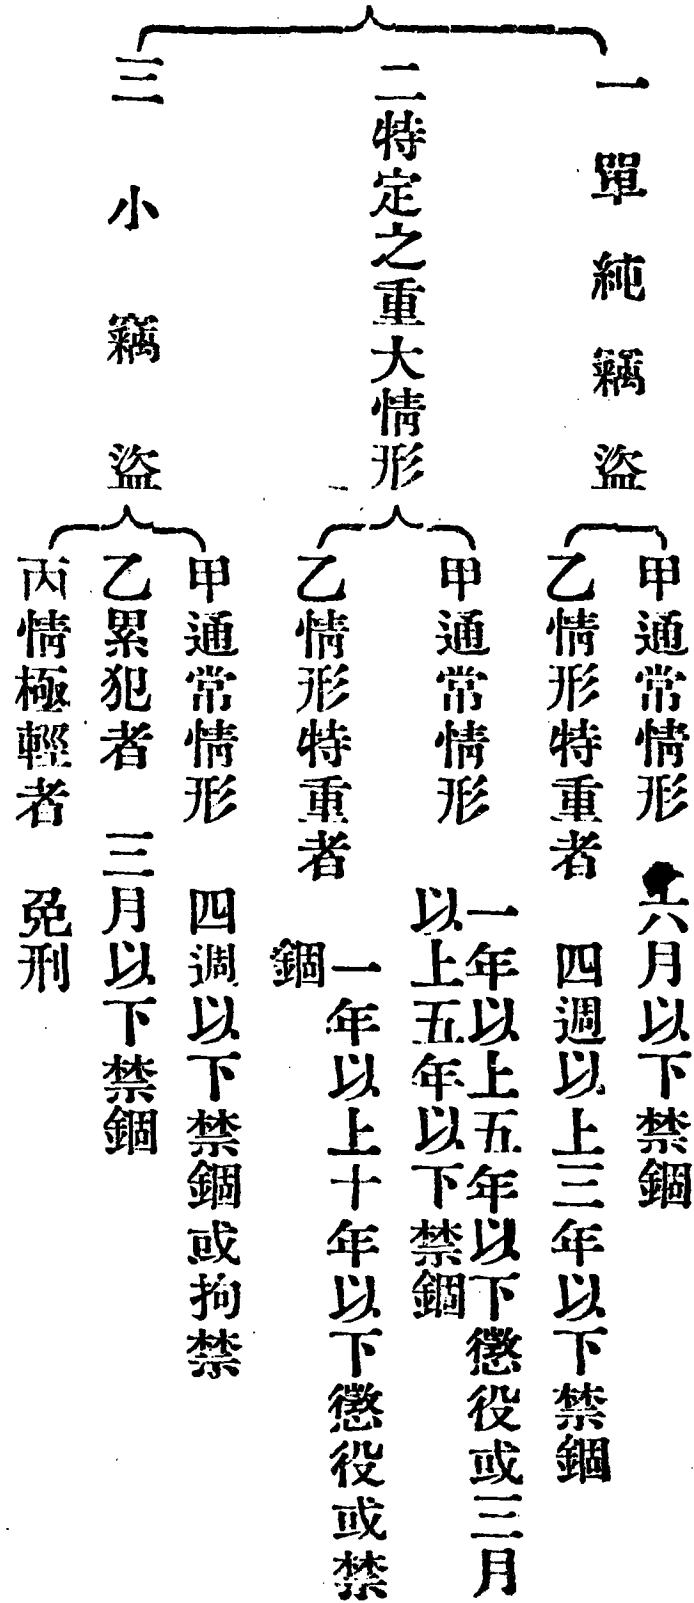 一 單純竊盜
甲 通常情形 六月以下禁錮
乙 情形特重者 四週以上三年以下禁錮
二 特定之重大情形
甲 通常情形 一年以上五年以下懲役或三月
以上五年以下禁錮
乙 情形特重者 一年以上十年以下懲役或禁
錮
三 小竊盜
甲 通常情形 四週以下禁錮或拘禁
乙 累犯者 三月以下禁錮
丙 情極輕者 免刑